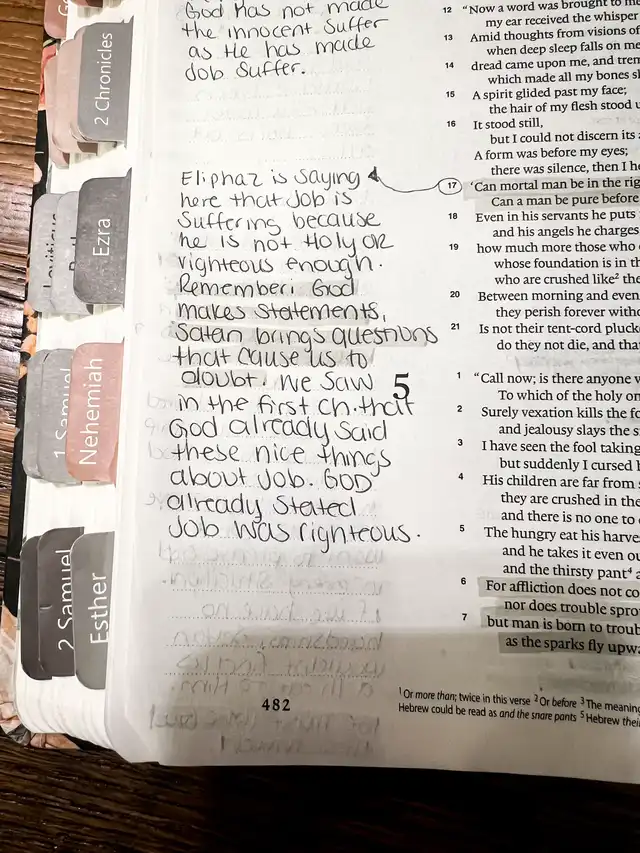 God has not made
the innocent suffer
as He has made
Job suffer.
Eliphaz is saying
here that Job is
suffering because
he is not Holy OR
righteous enough.
Remember: God
makes statements,
Satan brings questions
that cause us to
doubt. We saw
in the first ch. that
God already said
these nice things
about Job. GOD
already stated
Job was righteous.
482
2 Chronicles
Leviticus
Ezra
1 Samuel
Nehemiah
2 Samuel
Esther
12 "Now a word was brought to me
my ear received the whisper
13 Amid thoughts from visions of
when deep sleep falls on me
14 dread came upon me, and
which made all my bones
15 A spirit glided past my face;
the hair of my flesh stood
16 It stood still,
but I could not discern its
A form was before my eyes;
there was silence, then I
17 'Can mortal man be in the
Can a man be pure before
18 Even in his servants he puts
and his angels he charges
19 how much more those who
whose foundation is in
who are crushed like2
20 Between morning and
they perish forever
21 Is not their tent-cord
do they not die, and
5
1 "Call now; is there anyone
To which of the holy
2 Surely vexation kills the
and jealousy slays the
3 I have seen the fool taking
but suddenly I cursed
4 His children are far from
they are crushed in the
and there is no one to
5 The hungry eat his
and he takes it even
and the thirsty pant4
6 For affliction does not
nor does trouble
7 but man is born to
as the sparks fly
1 Or more than; twice in this verse 2 Or before 3 The
Hebrew could be read as and the snare pants 5 Hebrew